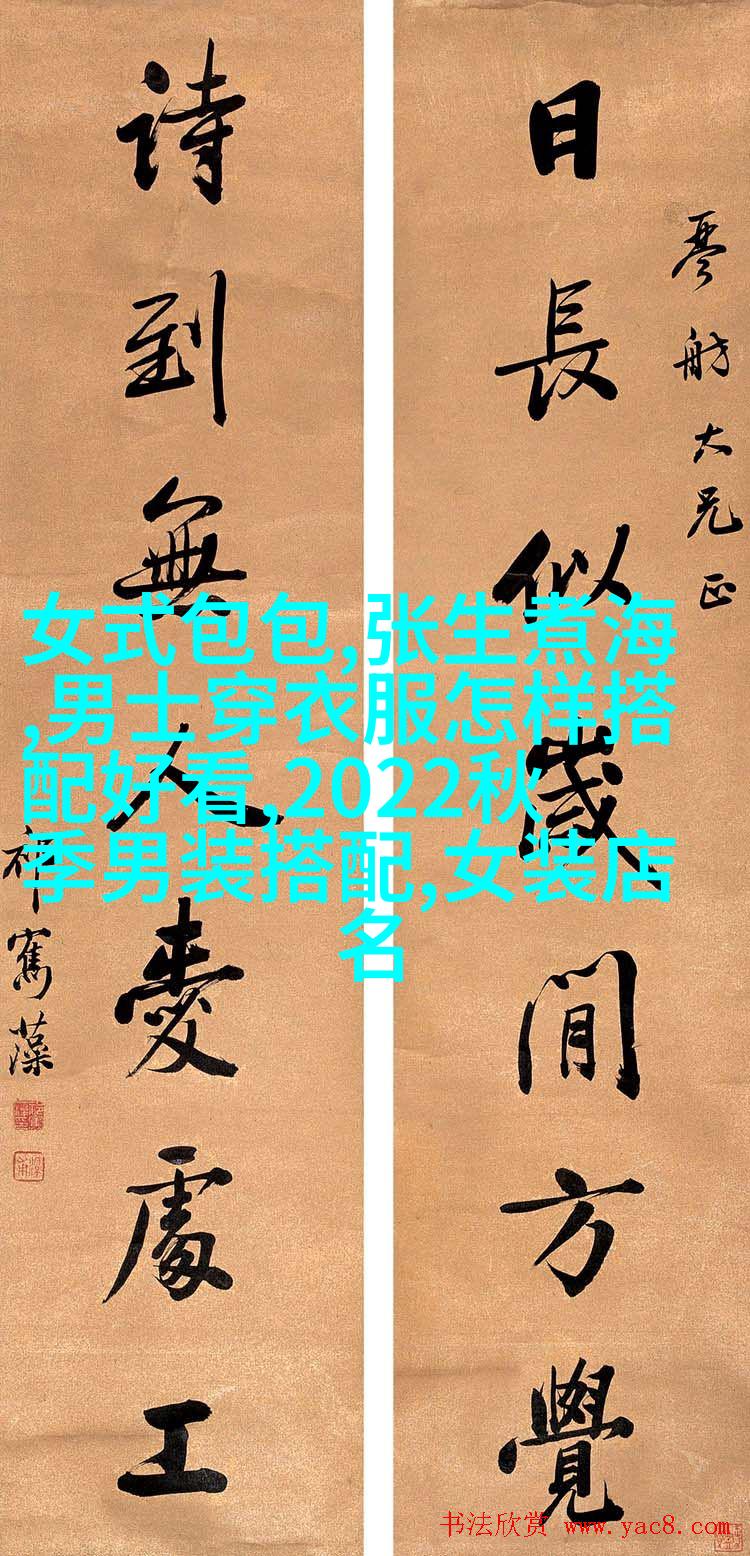 日長似歲閒方覺
琴舫大兄正
詩到無人愛處工
祁寯藻
女式包包,张生煮海
,男士穿衣服怎样搭
配好看,2022秋
季男装搭配,女装店
名
书法欣赏 www.yac8.com